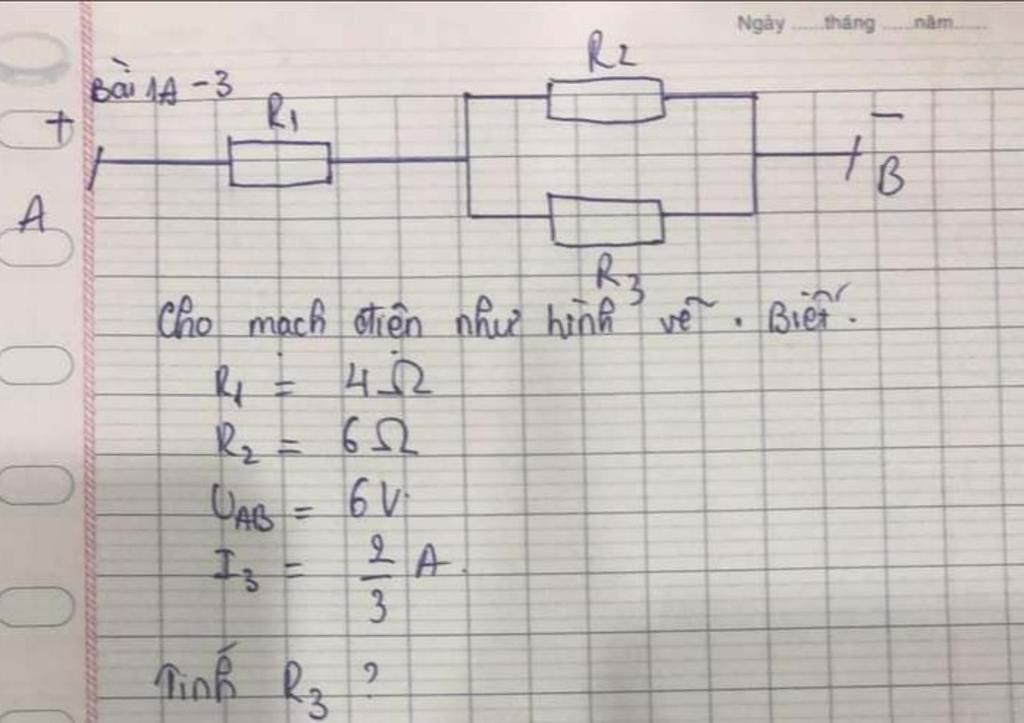 Ngày ......tháng ......năm......
Bài 1A - 3
R2
+
R1
−
A
B
R3
Cho mạch điện như hình vẽ. Biết.
R1 = 4Ω
R2 = 6Ω
UAB = 6V
I3 = 2/3 A.
Tính R3 ?